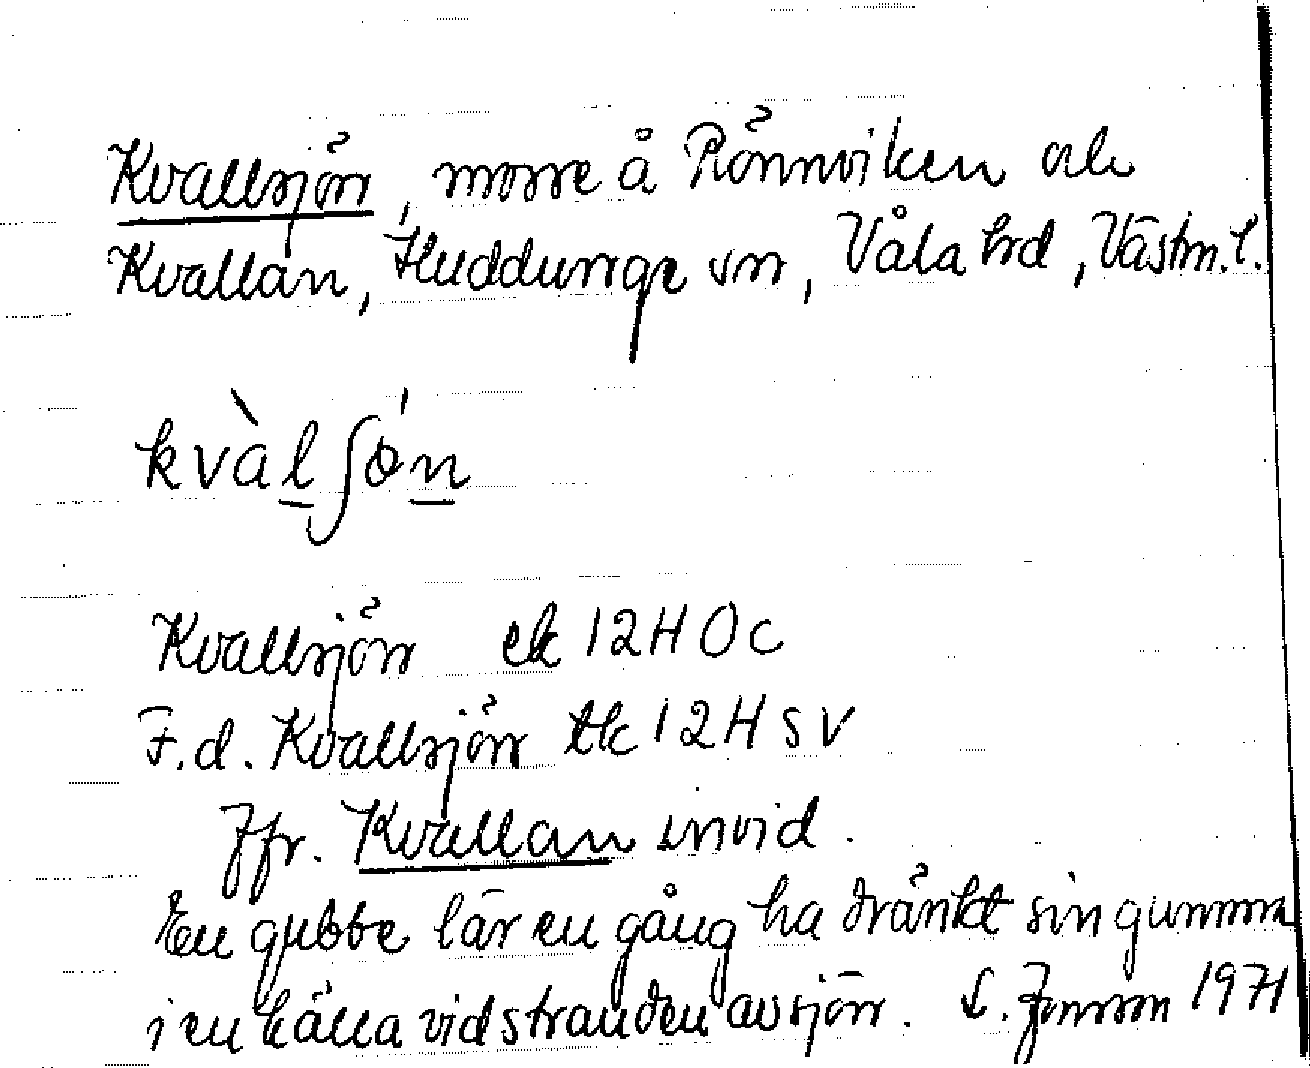 Kvallsjön, mosse å Rönnviken och
Kvallån, Huddunge sn, Våla hrd, Västm. l.
kvàlʃó̵n
Kvallsjön ek 12H 0c
F.d. Kvallsjön tk 12H SV
Jfr. Kvallån invid.
En gubbe lär en gång ha dränkt sin gumma
i en källa vid stranden av sjön. S. Jansson 1971